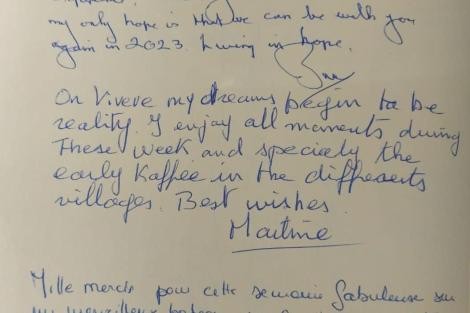 my only hope is that we can be with you
again in 2023. Living in hope.
On Vivere my dreams begin to be
reality. I enjoy all moments during
These week and specialy the
early Kaffee in the differents
villages. Best wishes
Martine
Mille mercis pour cette semaine fabuleuse sur
un merveilleux bateau